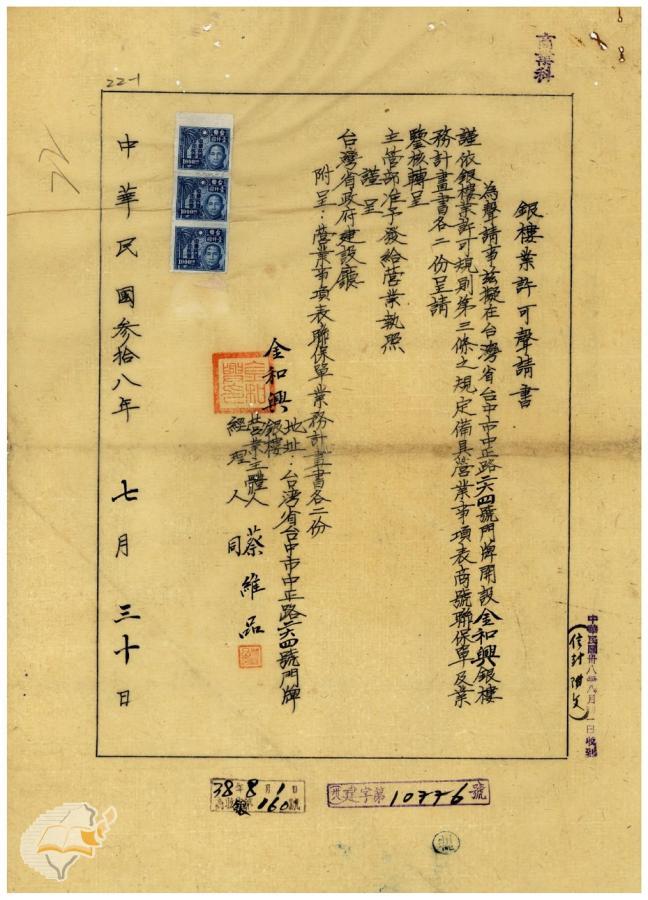 商業科
22-1
72
銀樓業許可聲請書
為聲請事茲擬在台灣省台中市中正路二六四號門牌開設金和興銀樓
謹依銀樓業許可規則第三條之規定備具營業事項表商號聯保單及業
務計畫書各二份呈請
鑒核轉呈
主管部准予發給營業執照
謹呈
台灣省政府建設廳
附呈：營業事項表聯保單業務計畫書各二份
金和興銀樓
地址：台灣省台中市中正路二六四號門牌
營業主體人 蔡維品
經理人 同
中華民國參拾八年七月三十日
中華民國卅八年八月一日收到
（信封附煢）
38年8月1日
銀160號
建字第10776號